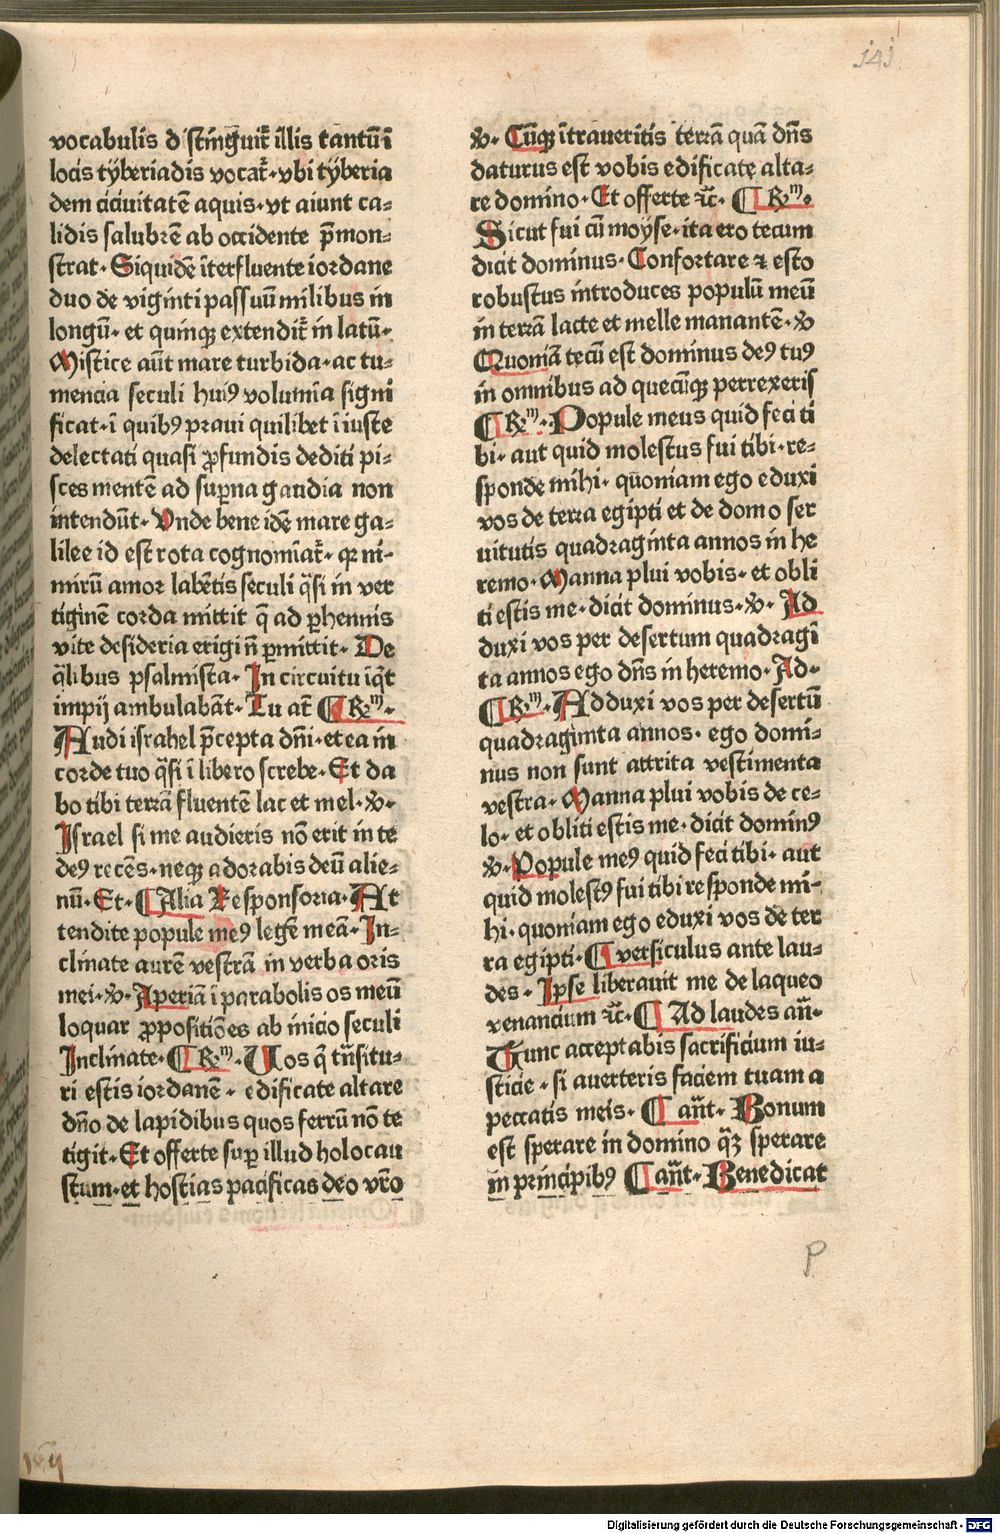 141
vocabulis distinguit᷑ illis tantū ĩ
locis tÿberiadis vocat᷑. vbi tÿberia
dem ciuitatē aquis. vt aiunt ca⸗
lidis salubrē ab occidente p̄mon⸗
strat. Siquidē ĩterfluente iordane
duo de viginti passuū milibus in
longū. et quinqꝫ extendit᷑ in latū.
Mistice aūt mare turbida. ac tu⸗
mencia seculi huiꝰ volumīa signi
ficat. ĩ quibꝰ praui quilibet ĩ iuste
delectati quasi ꝓfundis dediti pi⸗
sces mentē ad suꝑna gaudia non
intendūt. Vnde bene idē mare ga⸗
lilee id est rota cognomīat᷑. qꝛ ni⸗
mirū amor labētis seculi q̄si in ver
tiginē corda mittit q̄ ad ꝑhennis
vite desideria erigi n̄ ꝑmittit. De
q̄libus psalmista. In circuitu iq̄t
impij ambulabāt. Tu at̄ ¶ ℞m̄.
Audi israhel p̄cepta dn̄i. et ea in
corde tuo q̄si ĩ libero screbe. Et da
bo tibi terrā fluentē lac et mel. ℣.
Israel si me audieris nō erit in te
deꝰ recēs. neqꝫ adorabis deū alie⸗
nū. Et. ¶ Alia Responsoria. At
tendite popule meꝰ legē meā. In⸗
clinate aurē vestrā in verba oris
mei. ℣. Aperiā ĩ parabolis os meū
loquar ꝓpositiōes ab inicio seculi
Inclinate. ¶ ℞m̄. Uos q̄ trāsitu⸗
ri estis iordanē. edificate altare
dn̄o de lapidibus quos ferrū nō te
tigit. Et offerte suꝑ illud holocau
stum. et hostias pacificas deo vr̄o
℣. Cūqꝫ ĩtraueritis terrā quā dn̄s
daturus est vobis edificate alta⸗
re domino. Et offerte ⁊c̄. ¶ ℞m̄.
Sicut fui cū moÿse. ita ero tecum
dicit dominus. Confortare ⁊ esto
robustus introduces populū meū
in terrā lacte et melle manantē. ℣
Quoniā tecū est dominus deꝰ tuꝰ
in omnibus ad quecūqꝫ perrexeris
¶ ℞m̄. Popule meus quid feci ti
bi. aut quid molestus fui tibi. re⸗
sponde mihi. quoniam ego eduxi
vos de terra egipti et de domo ser
uitutis quadraginta annos in he
remo. Manna plui vobis. et obli
ti estis me. dicit dominus. ℣. Ad
duxi vos per desertum quadragī
ta annos ego dn̄s in heremo. Ad.
¶ ℞m̄. Adduxi vos per desertū
quadraginta annos. ego domi⸗
nus non sunt attrita vestimenta
vestra. Manna plui vobis de ce⸗
lo. et obliti estis me. dicit dominꝰ
℣. Popule meꝰ quid feci tibi. aut
quid molestꝰ fui tibi responde mi⸗
hi. quoniam ego eduxi vos de ter
ra egipti. ¶ versiculus ante lau⸗
des. Ipse liberauit me de laqueo
venancium ⁊c̄. ¶ Ad laudes an̄.
Tunc acceptabis sacrificium iu⸗
sticie. si auerteris faciem tuam a
peccatis meis. ¶ an̄t. Bonum
est sperare in domino q̄ꝫ sperare
in principibꝰ ¶ an̄t. Benedicat
p
Digitalisierung gefördert durch die Deutsche Forschungsgemeinschaft - DFG